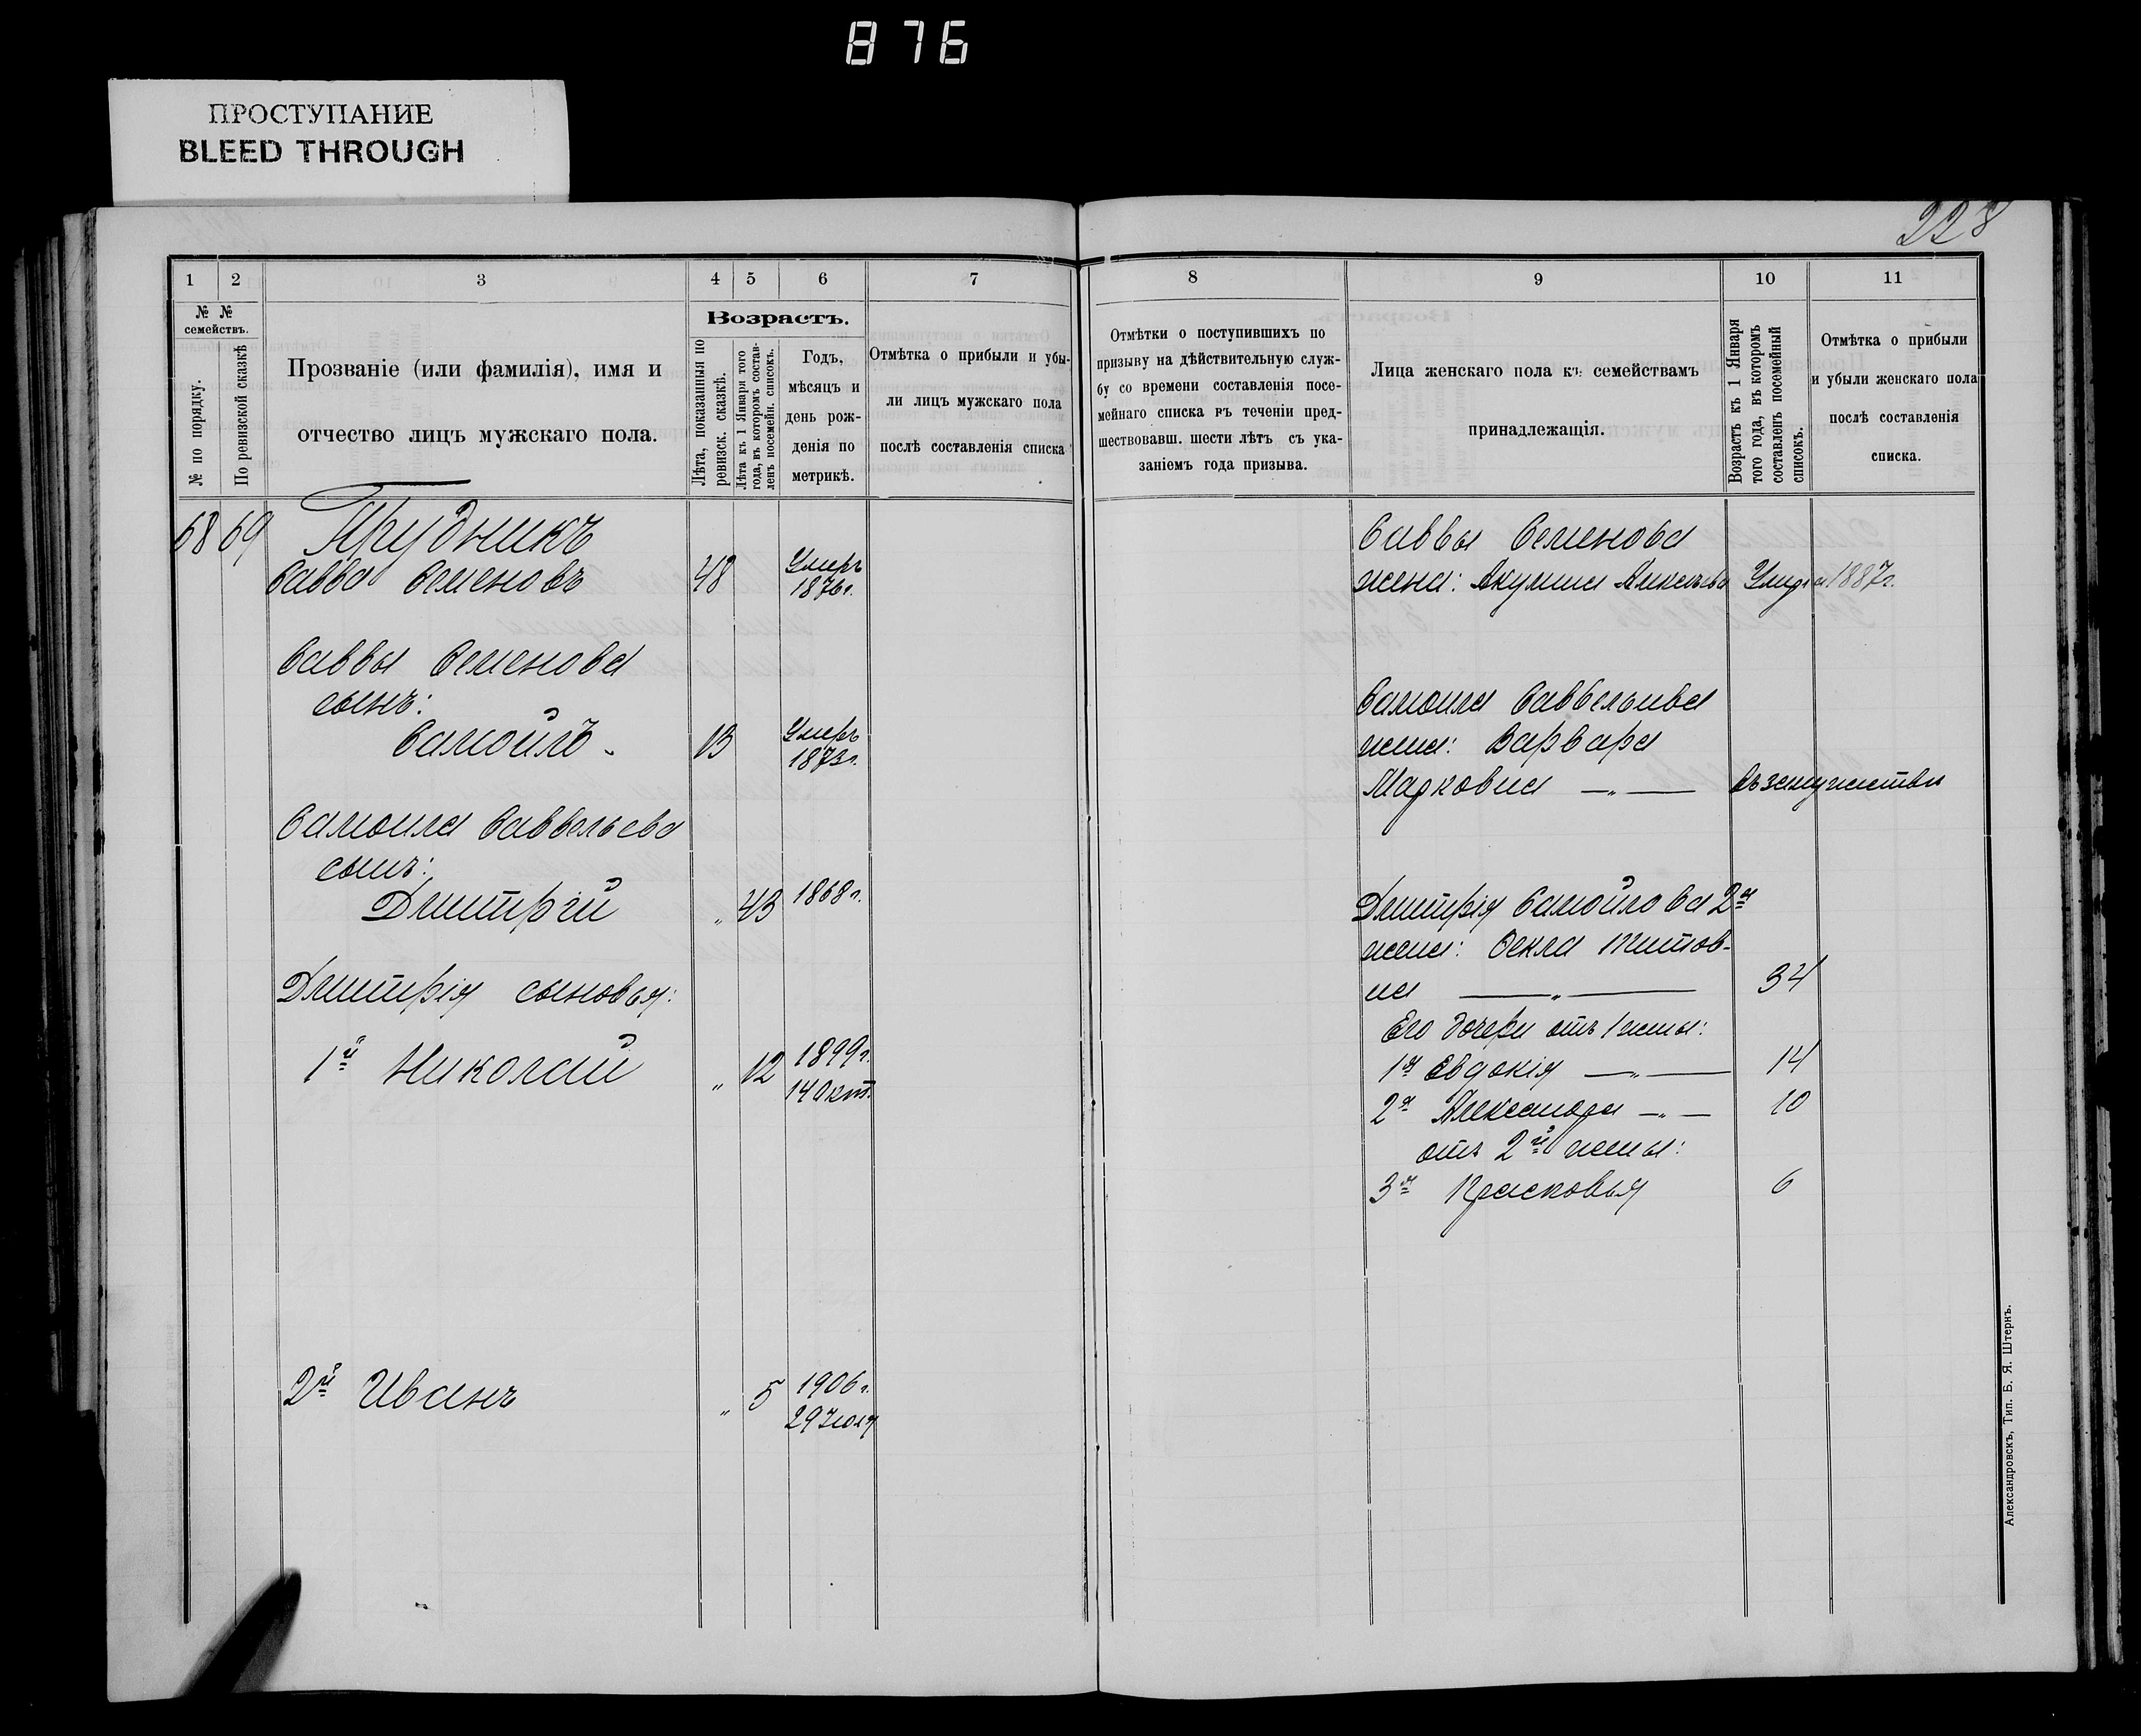 876
ПРОСТУПАНИЕ
BLEED THROUGH
228
1 2 3 4 5 6 7
№ № семействъ.
№ по порядку.
По ревизской сказкѣ
Прозваніе (или фамилія), имя и
отчество лицъ мужскаго пола.
Возрастъ.
Лѣта, показанныя по
ревизск. сказкѣ.
Лѣта къ 1 Января того
года, въ которомъ состав-
ленъ посемейн. списокъ.
Годъ,
мѣсяцъ и
день рож-
денія по
метрикѣ.
Отмѣтка о прибыли и убы-
ли лицъ мужскаго пола
послѣ составленія списка
68 69 Прудникъ
Савва Семеновъ 48 Умеръ
1876г.
Саввы Семенова
сынъ:
Самойлъ 13 Умеръ
1873г.
Самоила Саввельева
сынъ:
Дмитрій „ 43 1868г.
Дмитрія сыновья:
1й Николай „ 12 1899г.
14 Окт.
2й Иванъ „ 5 1906г.
29 Іюля
8 9 10 11
Отмѣтки о поступившихъ по
призыву на дѣйствительную служ-
бу со времени составленія посе-
мейнаго списка въ теченіи пред-
шествовавш. шести лѣтъ съ ука-
заніемъ года призыва.
Лица женскаго пола къ семействамъ
принадлежащія.
Возрастъ къ 1 Января
того года, въ которомъ
составленъ посемейный
списокъ.
Отмѣтка о прибыли
и убыли женскаго пола
послѣ составленія
списка.
Саввы Семенова
жена: Акулина Умерла 1887г.
Самоила Саввельива
жена: Варвара
Марковна —„— въ замужествѣ
Дмитрія Самойлова 2я
жена: Фекла Титов-
на —„— 34
Его дочери отъ 1 жены:
1я Евдокія —„— 14
2я Александра —„— 10
отъ 2й жены:
3я Прасковья 6
Александровскъ, Тип. Б. Я. Штернъ.